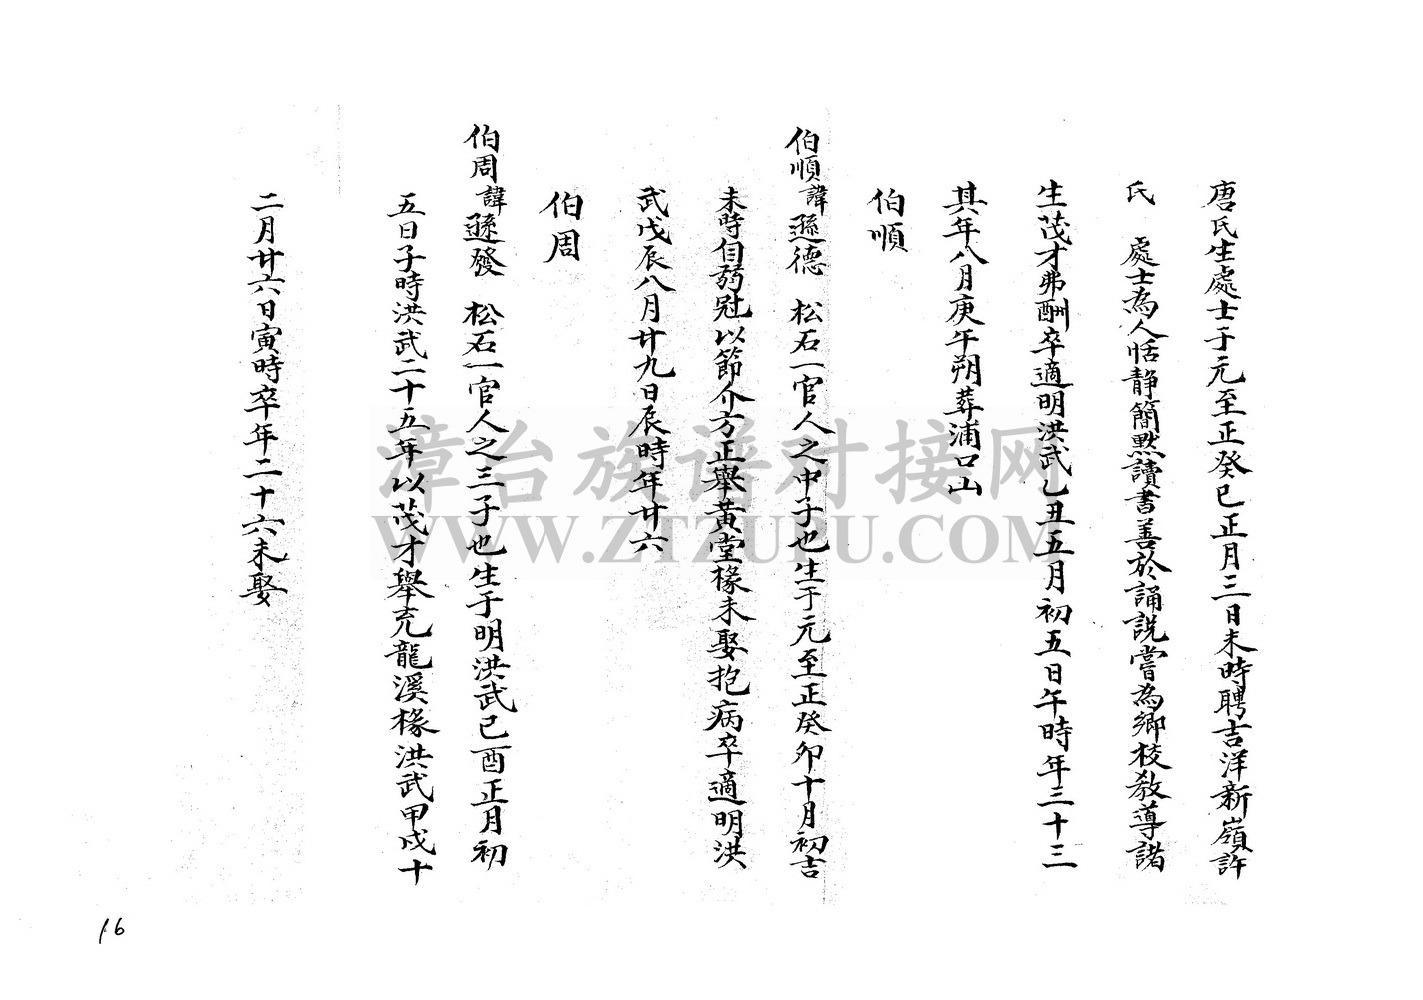 唐氏生處士于元至正癸巳正月三日未時聘吉洋新嶺許
氏 處士為人恬靜簡默讀書善於誦説嘗為鄉校教導諸
生茂才弗酬卒適明洪武乙丑五月初五日午時年三十三
其年八月庚午朔葬浦口山
伯順
伯順諱遜德 松石一官人之中子也生于元至正癸卯十月初吉
未時自弱冠以節介方正舉黃堂椽未娶抱病卒適明洪
武戊辰八月廿九日辰時年廿六
伯周
伯周諱遜發 松石一官人之三子也生于明洪武己酉正月初
五日子時洪武二十五年以茂才舉充龍溪椽洪武甲戌十
二月廿六日寅時卒年二十六未娶
16
漳台族谱对接网
WWW.ZTZUPU.COM